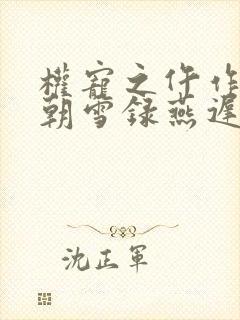 權寵之仵作
朝雪録燕遲
沈正軍